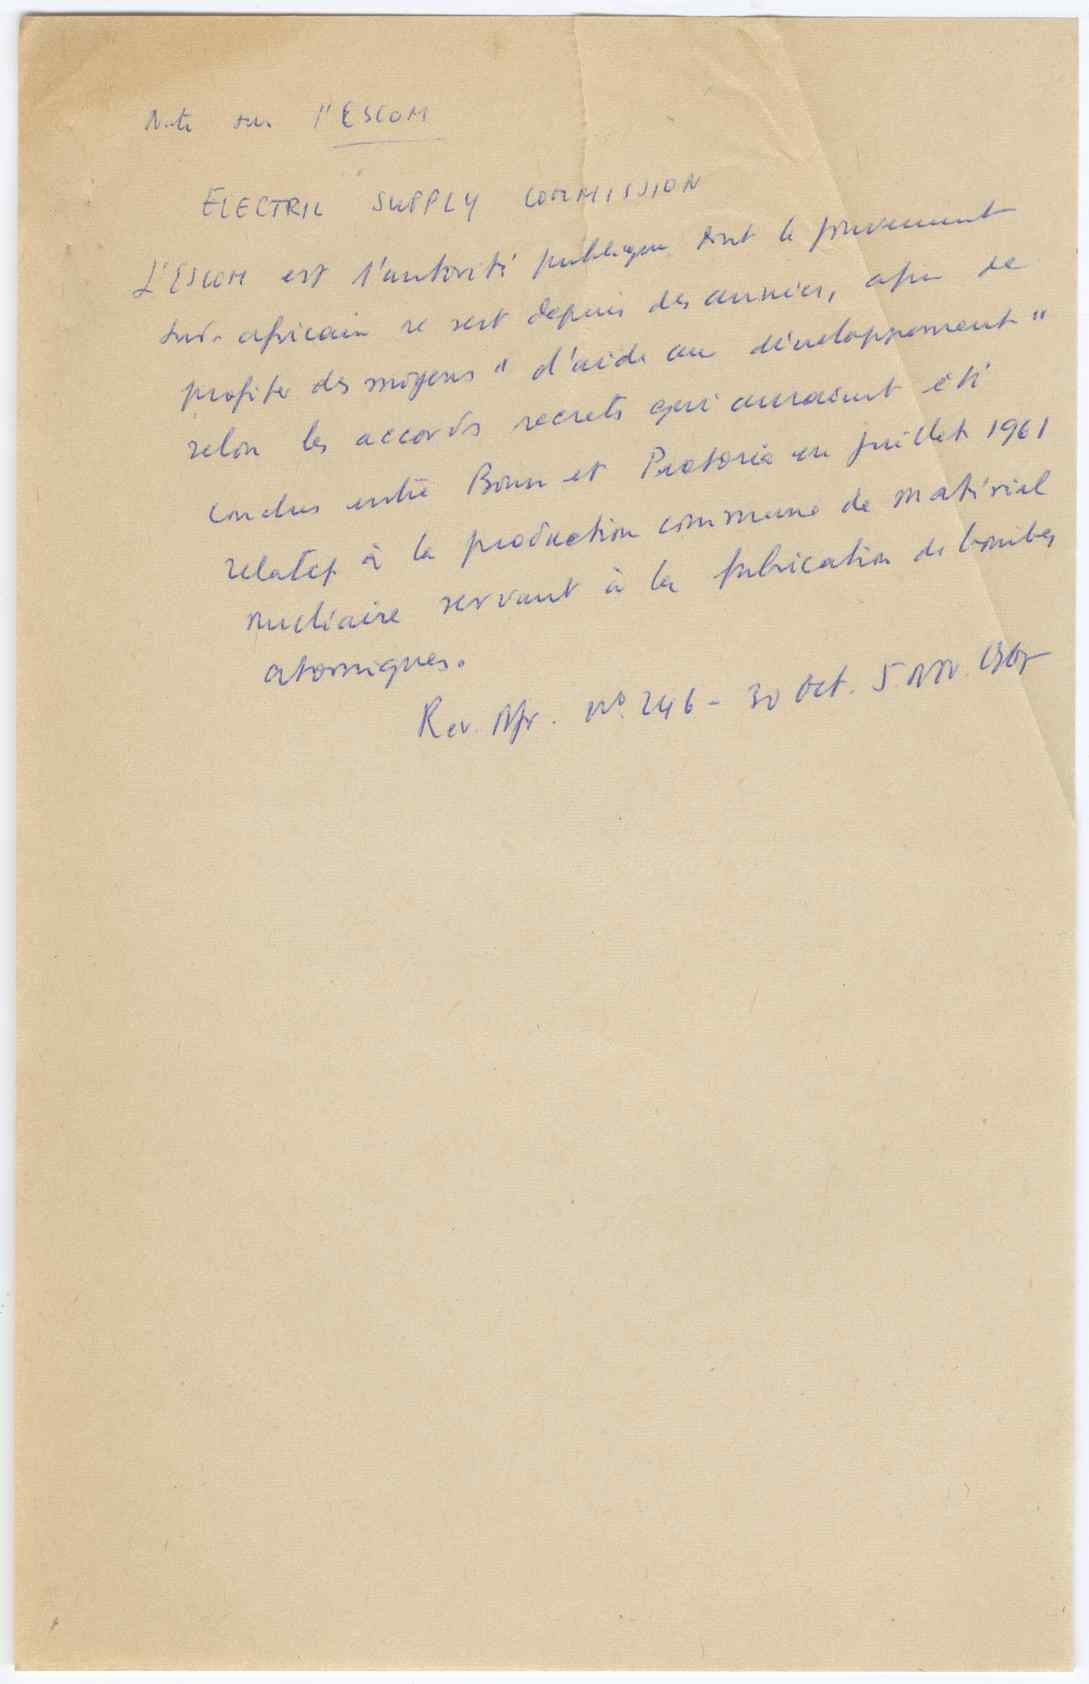 Note sur l'ESCOM
ELECTRIC SUPPLY COMMISSION
L'ESCOM est l'autorité publique dont le gouvernement
sud-africain se sert depuis des années, afin de
profiter des moyens "d'aide au développement"
selon les accords secrets qui auraient été
conclus entre Bonn et Pretoria en juillet 1961
relatif à la production commune de matériel
nucléaire servant à la fabrication de bombes
atomiques.
Rev. Afr. No. 246 - 30 Oct. 5 Nov.